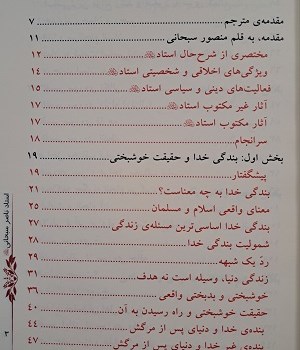 مقدمه‌ی مترجم ۷
مقدمه، به قلم منصور سبحانی ۱۱
مختصری از شرح‌حال استاد ۱۲
ویژگی‌های اخلاقی و شخصیتی استاد ۱۴
فعالیت‌های دینی و سیاسی استاد ۱۵
آثار غیر مکتوب استاد ۱۷
آثار مکتوب استاد ۱۷
سرانجام ۱۸
بخش اول: بندگی خدا و حقیقت خوشبختی ۱۹
پیشگفتار ۱۹
بندگی خدا به چه معناست؟ ۲۱
معنای واقعی اسلام و مسلمان ۲۵
بندگی خدا اساسی‌ترین مسئله‌ی زندگی ۲۷
شمولیت بندگی خدا ۲۸
ردّ یک شبهه ۲۹
زندگی دنیا، وسیله است نه هدف ۳۱
خوشبختی و بدبختی واقعی ۳۶
حقیقت خوشبختی و راه رسیدن به آن ۴۰
بنده‌ی خدا و دنیای پس از مرگش ۴۴
بنده‌ی غیر خدا و دنیای پس از مرگش ۴۷
استاد ناصر سبحانی
۳